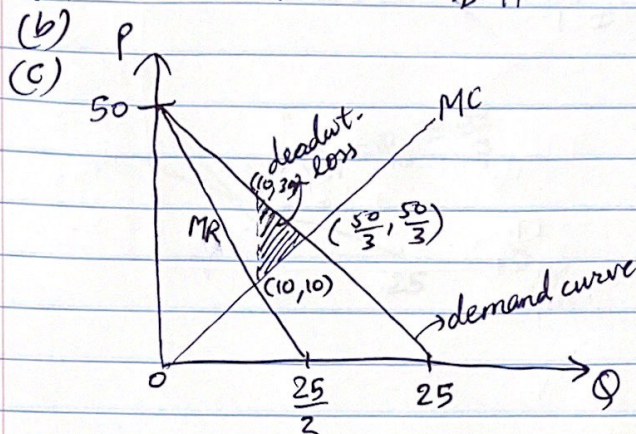 (b)
(c)
P
50
MC
deadwt.
loss
MR
(50/3, 50/3)
(10,10)
demand curve
0
25/2
25
Q